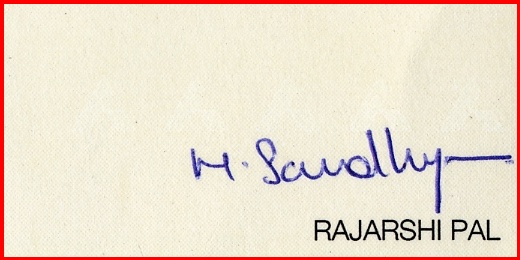 M. Sandhya
RAJARSHI PAL